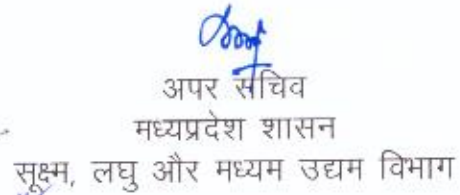 अपर सचिव
मध्यप्रदेश शासन
सूक्ष्म, लघु और मध्यम उद्यम विभाग